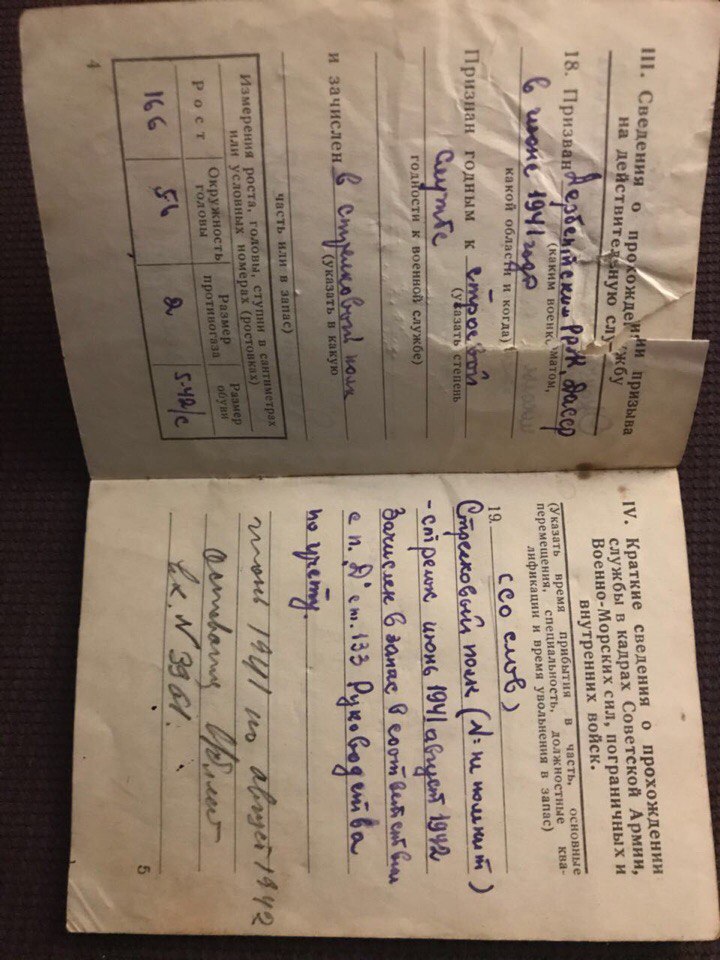 III. Сведения о прохождении призыва
на действительную службу
18. Призван Дербентским РВК, ДАССР
(каким военкоматом,
в июне 1941 года
какой области и когда)
Признан годным к строевой
(указать степень
службе
годности к военной службе)
и зачислен в стрелковый полк
(указать в какую
часть или в запас)
Измерения роста, головы, ступни в сантиметрах
или условных номерах (ростовках)
Рост
Окружность головы
Размер противогаза
Размер обуви
166
56
2
5-42/с
4
IV. Краткие сведения о прохождении
службы в кадрах Советской Армии,
Военно-Морских сил, пограничных и
внутренних войск.
(Указать время прибытия в часть, основные
перемещения, специальность, должностные ква-
лификации и время увольнения в запас)
19. (со слов)
Стрелковый полк (№ не помнит)
- стрелок июнь 1941 август 1942
Зачислен в запас в соответствии
с п. "Д" ст. 133 Руководства
по учёту.
июнь 1941 по август 1942
вх. N 3961.
5